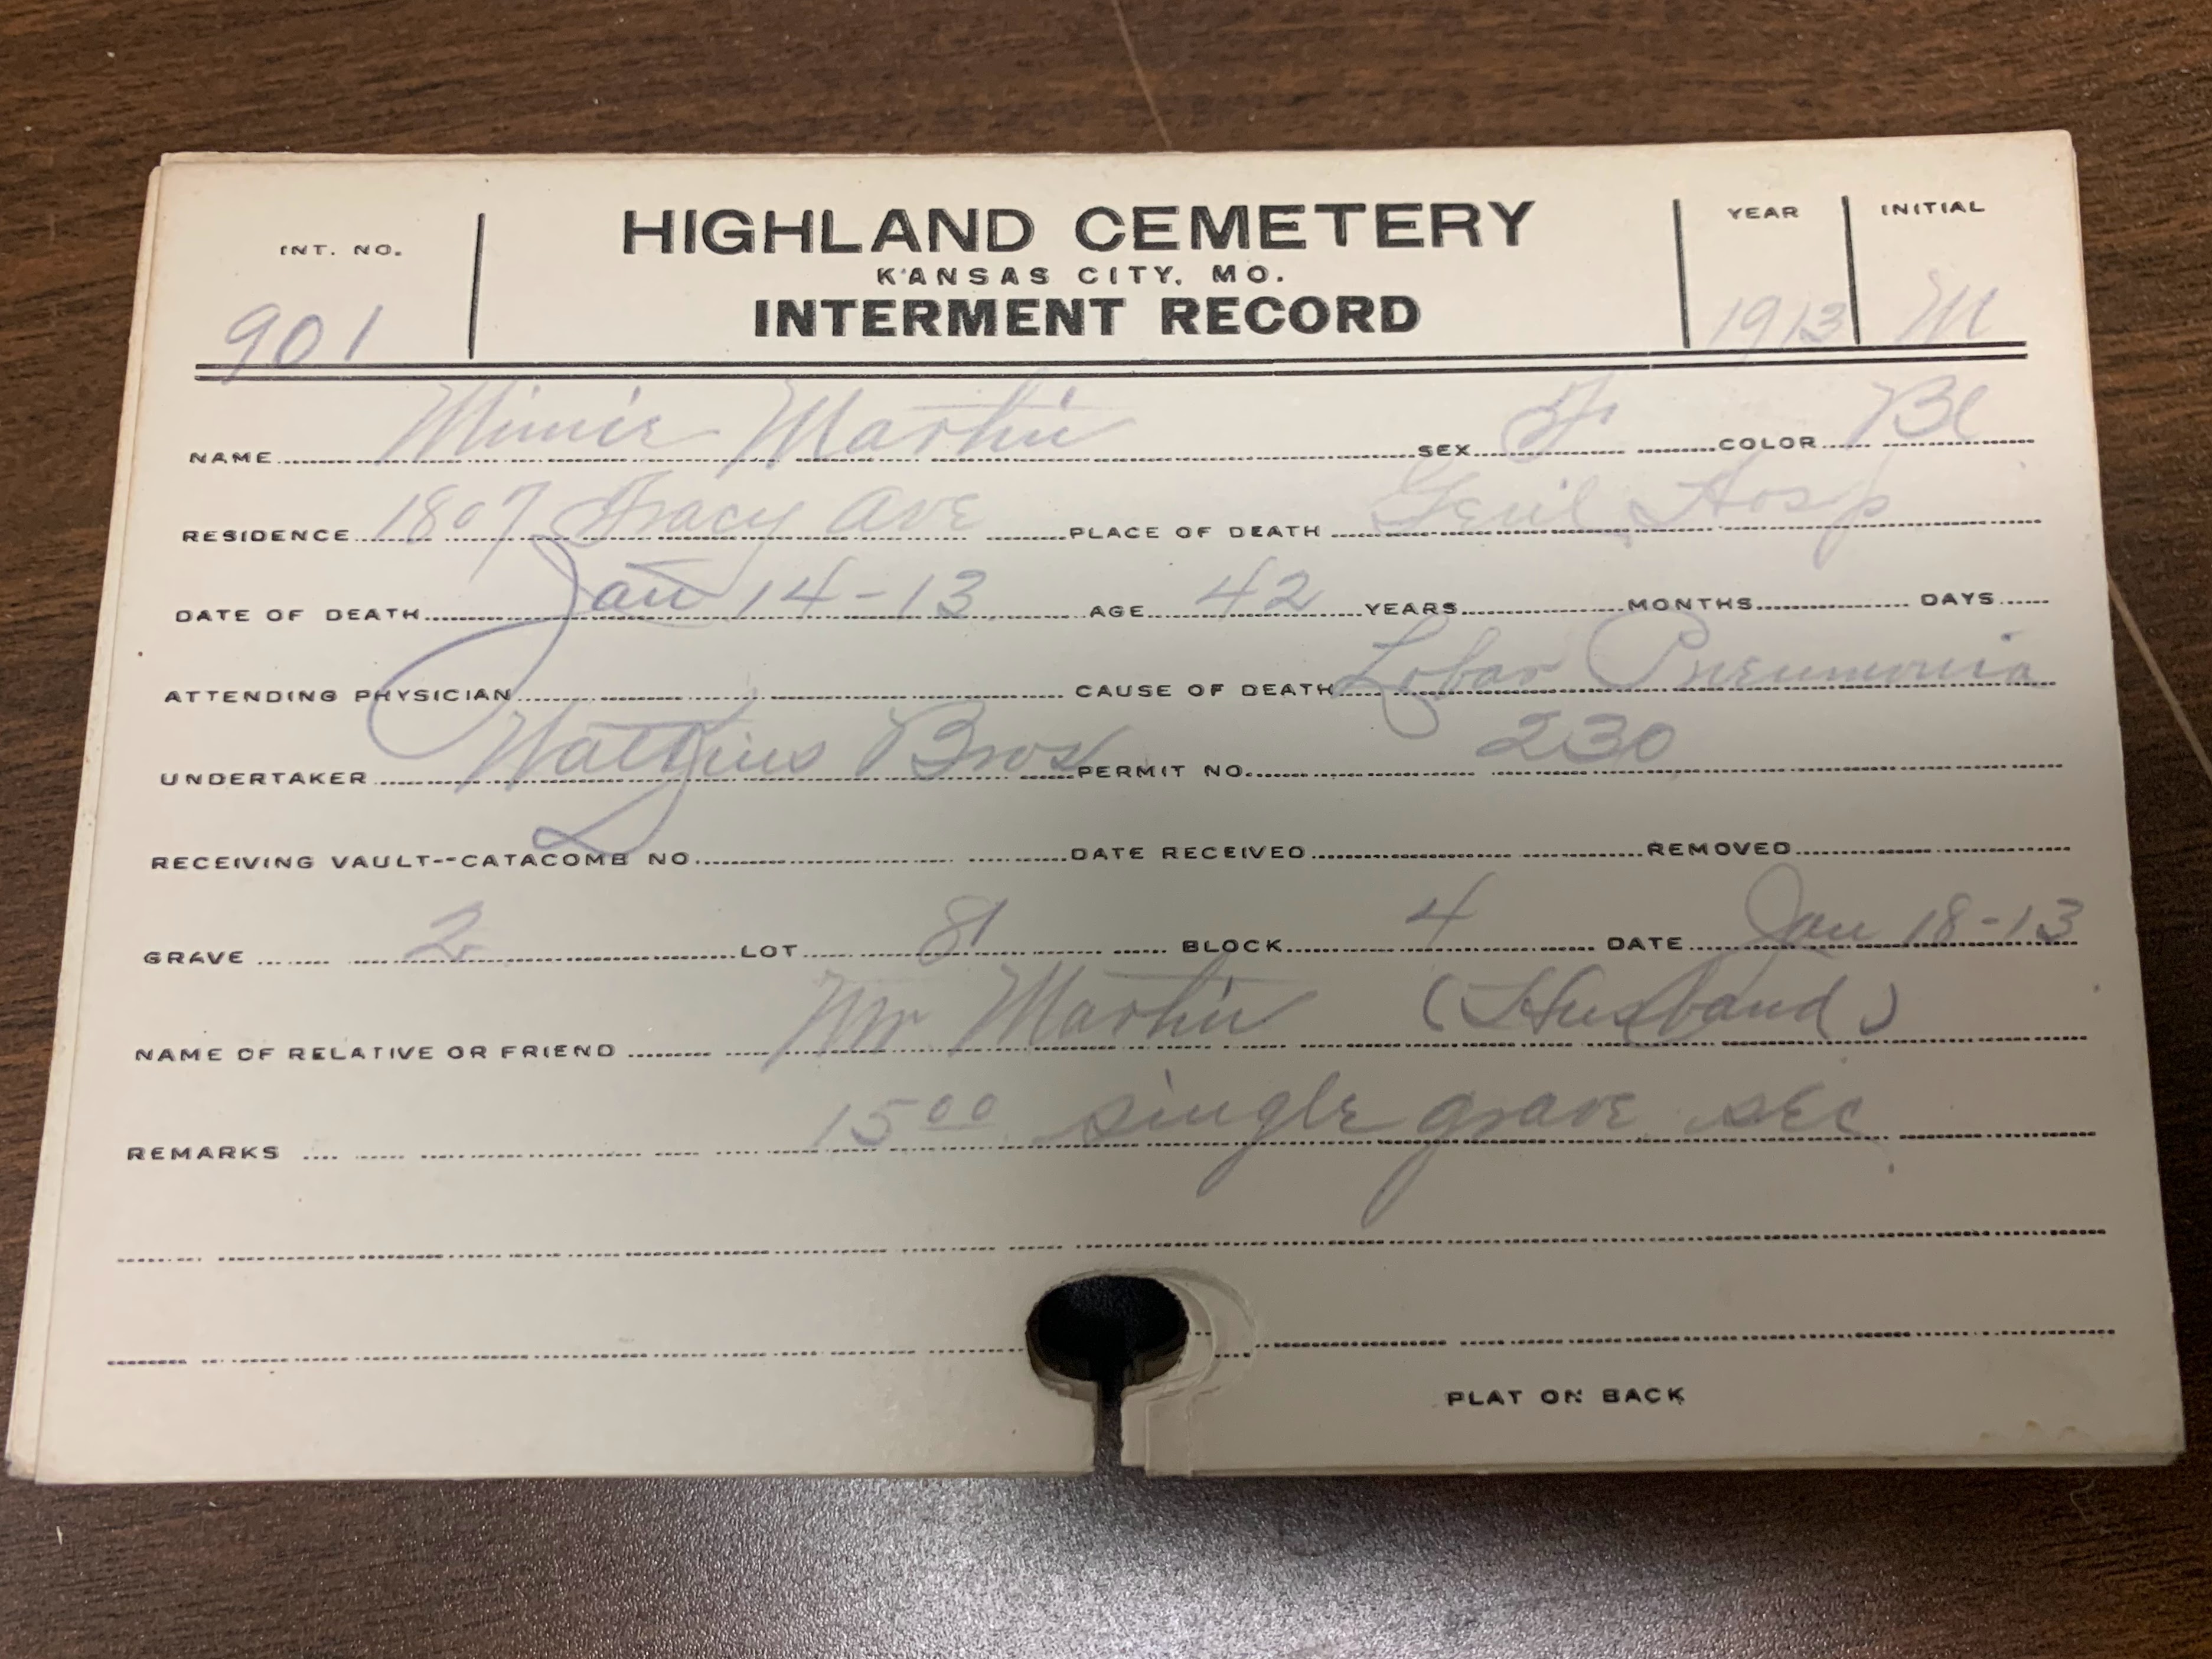 INT. NO. HIGHLAND CEMETERY YEAR INITIAL
KANSAS CITY, MO.
901 INTERMENT RECORD 1913 M
NAME Minnie Martin SEX F COLOR Bl
RESIDENCE 1807 Tracy Ave PLACE OF DEATH Genl Hosp
DATE OF DEATH Jan 14-13 AGE 42 YEARS MONTHS DAYS
ATTENDING PHYSICIAN CAUSE OF DEATH Lobar Pneumonia
UNDERTAKER Watkins Bros PERMIT NO. 230
RECEIVING VAULT--CATACOMB NO. DATE RECEIVED REMOVED
GRAVE 2 LOT 81 BLOCK 4 DATE Jan 18-13
NAME OF RELATIVE OR FRIEND Mr Martin (Husband)
REMARKS 15 00 single grave sec
PLAT ON BACK